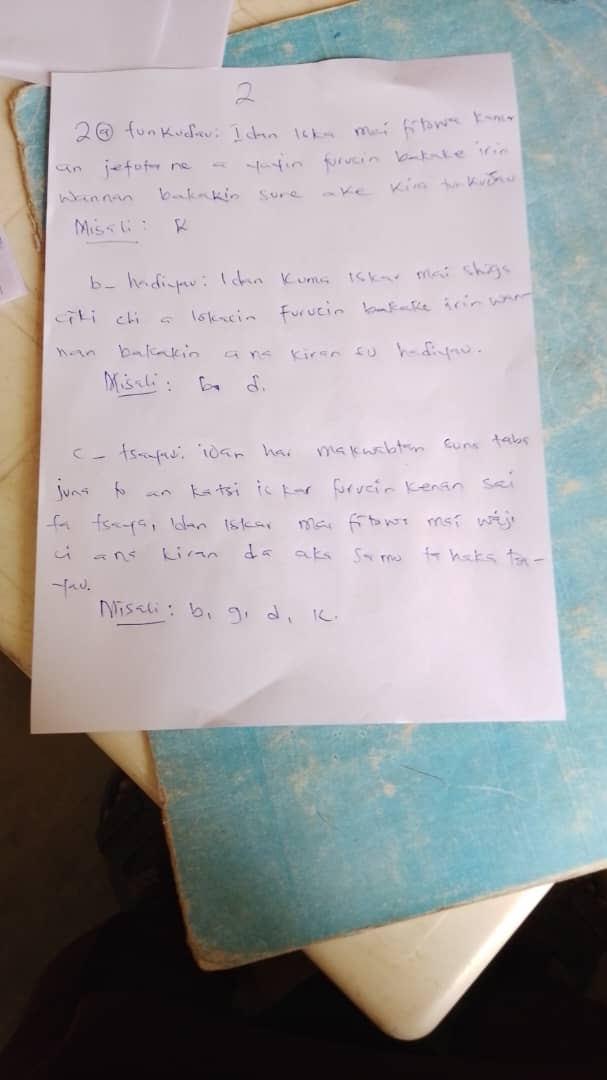 2
2 (a) tunkuɗau: Idan Iska mai fitowa kamar
an jefota ne a yayin furucin bakake irin
Wannan bakakin sune ake kira tunkuɗau
Misali: K
b- hadiyau: Idan Kuma Iskar mai shiga
ciki ch a lokacin Furucin bakake irin wan-
nan bakakin ana kiran su hadiyau.
Misali: ɓ ɗ.
c- tsayau: idan har makwabtan suna taba
juna to an katsi is kar furucin kenan sai
ta tsaya, Idan Iskar mai fitowa mai waje
ci ana kiran da aka samu ta haka tsa-
yau.
Misali: b, g, d, k.